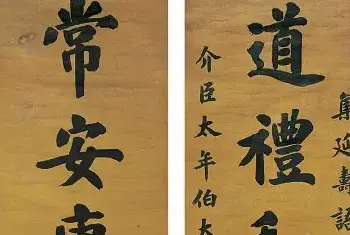 集延壽語
道禮
介臣太年伯大
常安